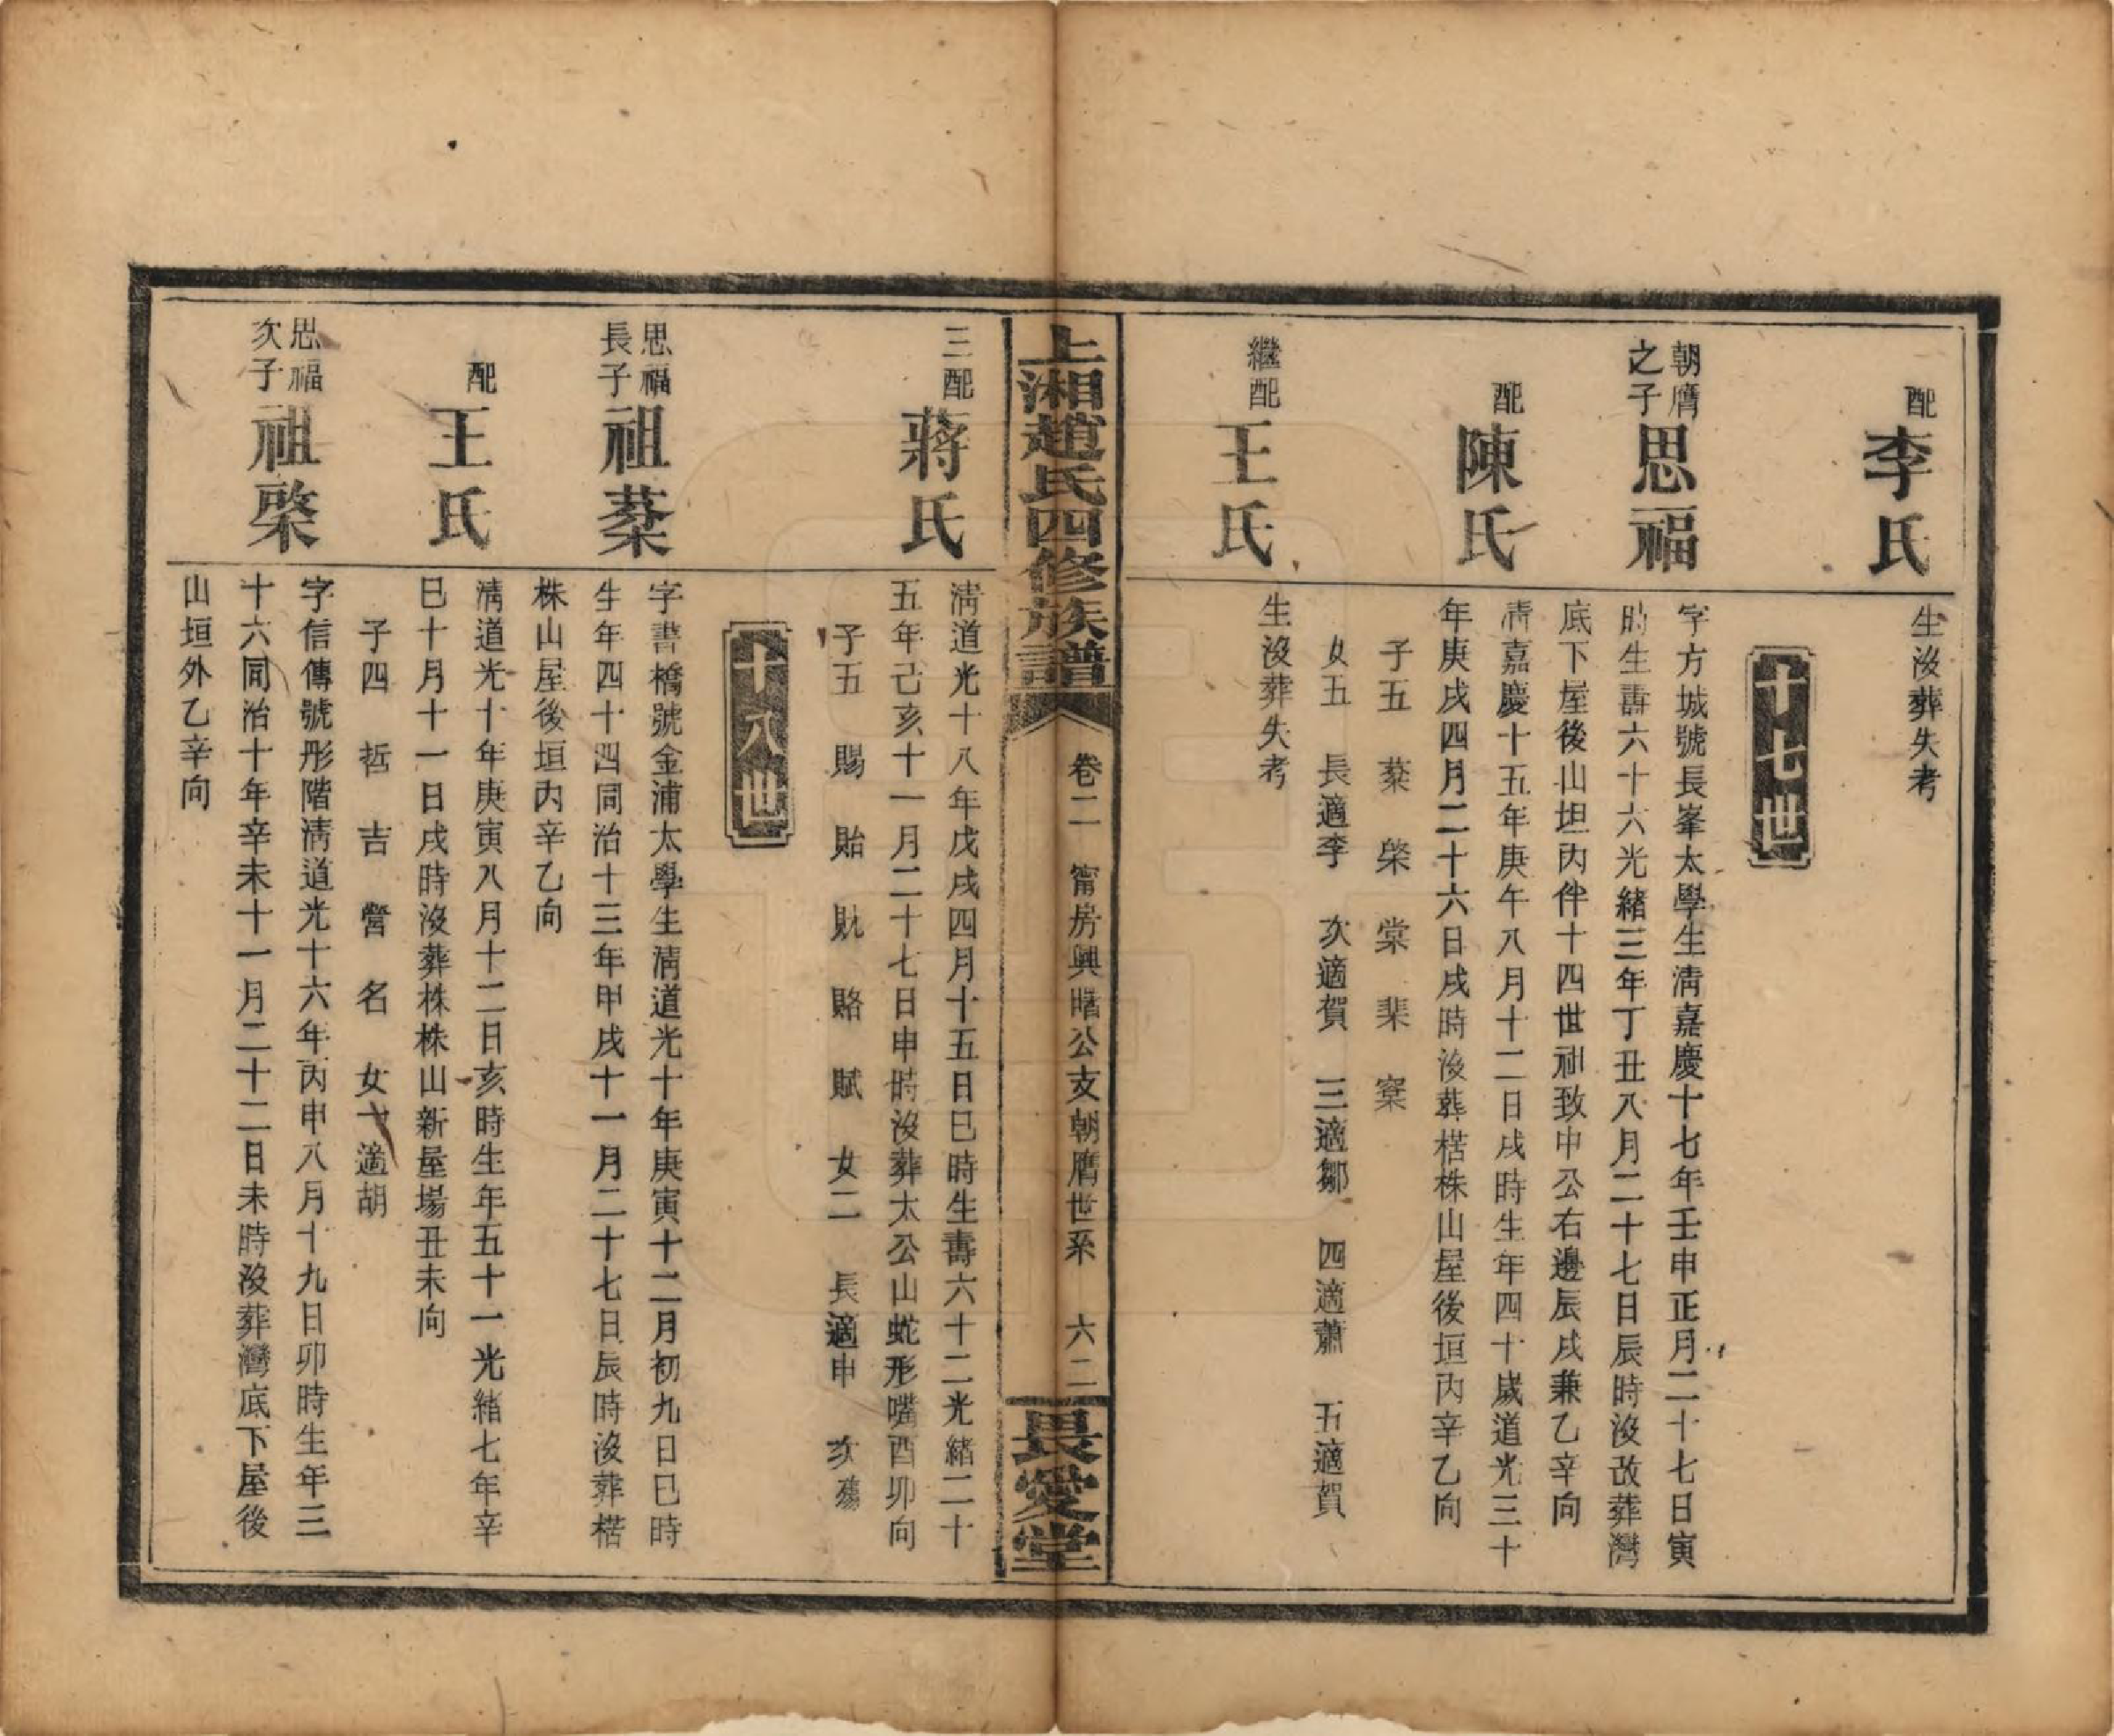 配
李氏
生沒葬失考
十七世
朝膺
之子
思福
字方城號長峯太學生清嘉慶十七年壬申正月二十七日寅
時生壽六十六光緒三年丁丑八月二十七日辰時沒改葬灣
底下屋後山坦丙伴十四世祖致中公右邊辰戌兼乙辛向
配
陳氏
清嘉慶十五年庚午八月十二日戌時生年四十歲道光三十
年庚戌四月二十六日戌時沒葬楛株山屋後垣丙辛乙向
子五 棻 棨 棠 棐 寀
女五 長適李 次適賀 三適鄒 四適蕭 五適賀
繼配
王氏
生沒葬失考
上湘趙氏四修族譜
卷二 甯房興曙公支朝膺世系 六二
長愛堂
三配
蔣氏
清道光十八年戊戌四月十五日巳時生壽六十二光緒二十
五年己亥十一月二十七日申時沒葬太公山蛇形嘴酉卯向
子五 賜 貽 貺 賂 賦 女二 長適申 次殤
十八世
思福
長子
祖棻
字書橋號金浦太學生清道光十年庚寅十二月初九日巳時
生年四十四同治十三年甲戌十一月二十七日辰時沒葬楛
株山屋後垣丙辛乙向
配
王氏
清道光十年庚寅八月十二日亥時生年五十一光緒七年辛
巳十月十一日戌時沒葬株株山新屋場丑未向
子四 哲 吉 營 名 女一適胡
思福
次子
祖棨
字信傳號彤階清道光十六年丙申八月十九日卯時生年三
十六同治十年辛未十一月二十二日未時沒葬灣底下屋後
山垣外乙辛向